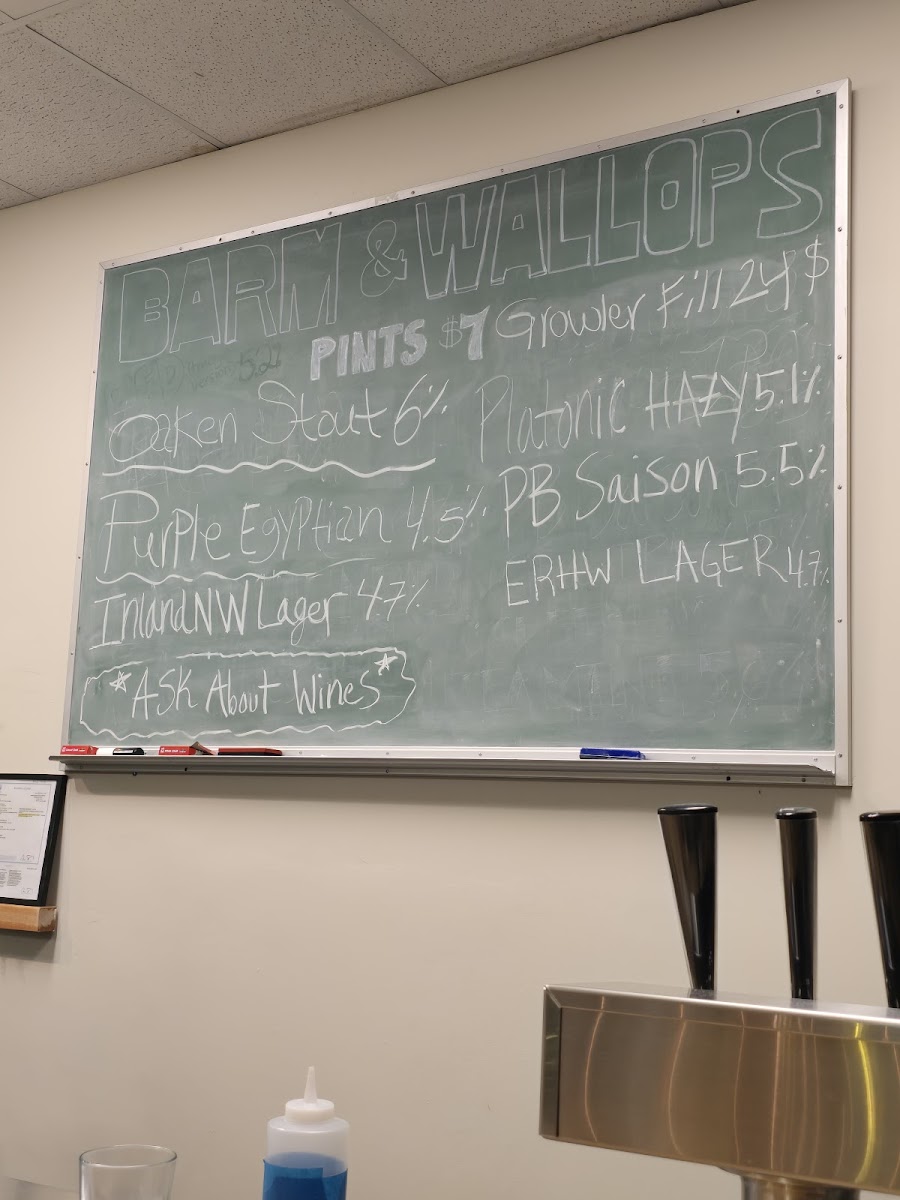 BARM & WALLOPS
PINTS $7 Growler Fill 24 $
Oaken Stout 6%
Purple Egyptian 4.5%
Inland NW Lager 4.7%
*ASK About Wines*
Platonic HAZY 5.1%
PB Saison 5.5%
ERHW LAGER 4.7%